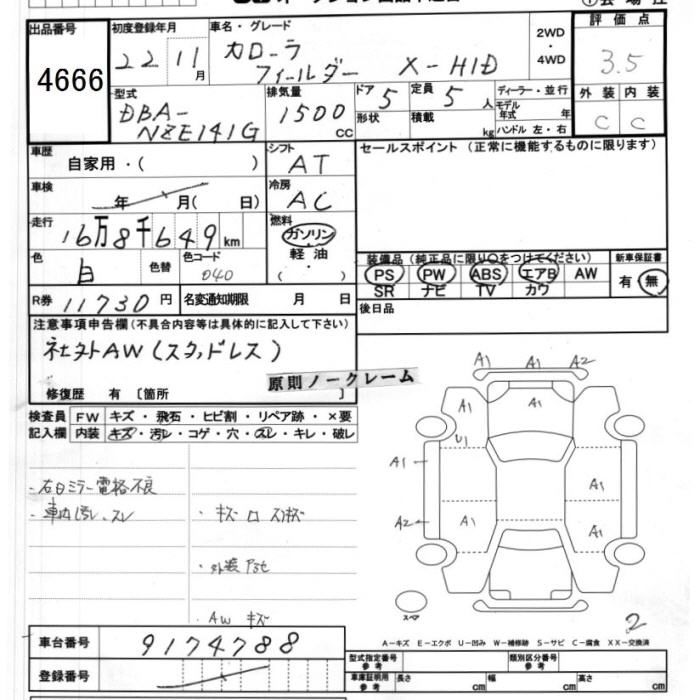 出品番号 4666
初度登録年月 22 11月
車名・グレード カローラ フィールダー X-HID
2WD・4WD
評価点 3.5
外装 C 内装 C
型式 DBA-NZE141G
排気量 1500 CC
ドア 5 形状
定員 5人 積載 kg
ディーラー・並行
モデル年式 年
ハンドル 左・右
車歴 自家用・( )
シフト AT
セールスポイント (正常に機能するものに限ります)
車検 年 月( 日)
冷房 AC
走行 16万8千649km
燃料 ガソリン・軽油・( )
色 白 色替 色コード 040
装備品 (純正品に限り○をつけてください)
PS PW ABS エアB AW
SR ナビ TV カワ
新車保証書 有・無
R券 11730円 名変通知期限 月 日
後日品
注意事項申告欄(不具合内容等は具体的に記入して下さい)
社外AW(スタッドレス)
修復歴 有 〔箇所 〕
原則ノークレーム
検査員記入欄
FW キズ・飛石・ヒビ割・リペア跡・×要
内装 キズ・汚レ・コゲ・穴・スレ・キレ・破レ
・右自ミラー電格不良
・車内汚レ、スレ
・外装
AW キズ
A1 A1 A2
A1 A1
U1
A1 A1
A2 A1 A1
スペア
2
A-キズ E-エクボ U-凹み W-補修跡 S-サビ C-腐食 XX-交換済
車台番号 9174788
登録番号
型式指定番号 参考 類別区分番号 参考
車庫証明用 参考 長さ cm 幅 cm 高さ cm